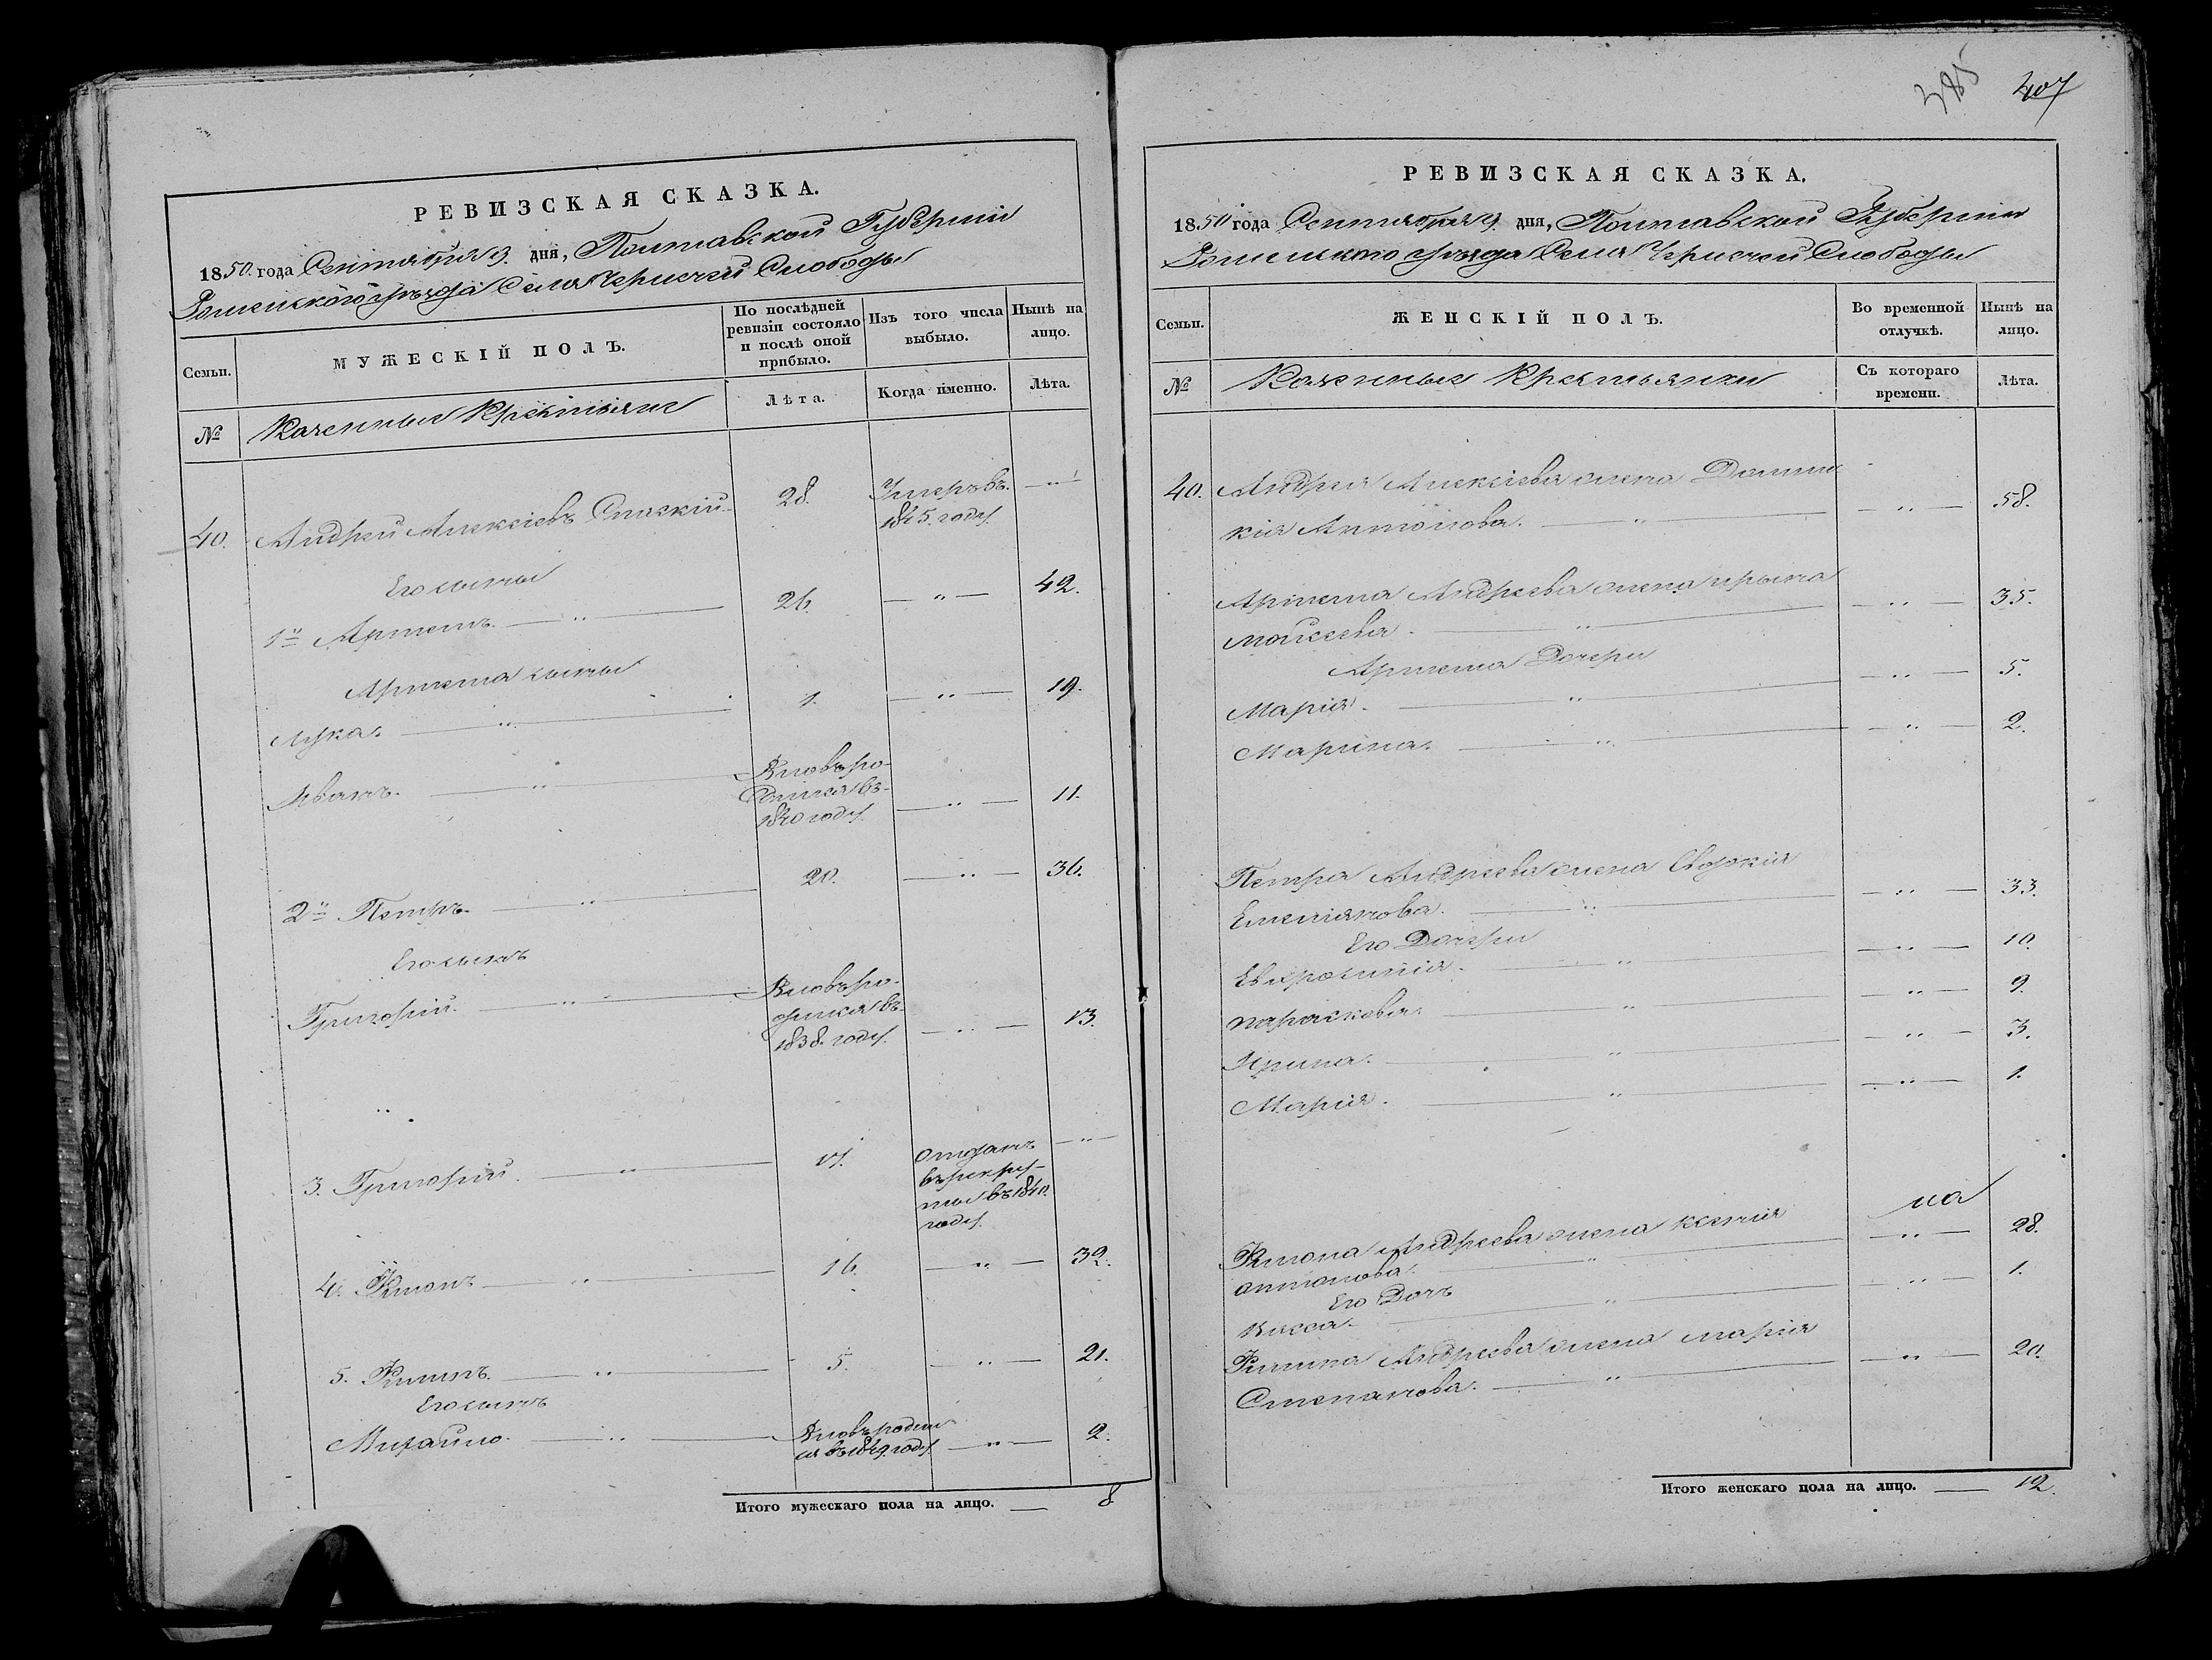 385 407
РЕВИЗСКАЯ СКАЗКА.
1850. года Сентября 9. дня, Полтавской Губерніи
Роменского уѣзда Села Чернечей Слободы
Семьи.
МУЖЕСКІЙ ПОЛЪ.
По послѣдней ревизіи состояло и послѣ оной прибыло.
Изъ того числа выбыло.
Нынѣ на лицо.
№
Казенные Крестьяне
Лѣта.
Когда именно.
Лѣта.
40. Андрей Алексіевъ Спаскій 28. Умеръ въ. — " —
1845. году.
Его сыны
1й Артемъ. — " — 26. — " — 42.
Артема сыны
Лука. — " — 1. — " — 19.
Иванъ. — " — Вновь ро-
дился въ
1840 году. — " — 11.
2й Петръ. — " — 20. — " — 36.
Его сынъ
Григорій. — " — Вновь ро-
дился въ
1838. году. — " — 13.
3. Григорій. — " — 17. отданъ — " —
въ рекру-
ты въ 1840.
году.
4. Филонъ — " — 16. — " — 32.
5. Филипъ. — " — 5. — " — 21.
Его сынъ
Михайло. — " — Вновь родил
ся въ 1849. году. — " — 2.
Итого мужескаго пола на лицо. — 8
РЕВИЗСКАЯ СКАЗКА.
1850 года Сентября 9. дня, Полтавской Губерніи
Роменского уѣзда Села Чернечей Слободы
Семьи.
ЖЕНСКІЙ ПОЛЪ.
Во временной отлучкѣ.
Нынѣ на лицо.
№
Казенные Крестьянки
Съ котораго времени.
Лѣта.
40. Андрея Алексіева жена Домни
кія Антонова. — " — — " — 58.
Артема Андреева жена ирына
мойсеева. — " — — " — 35.
Артема Дочери
Марія. — " — — " — 5.
Марина. — " — — " — 2.
Петра Андреева жена Евдокія
Емеліянова. — " — — " — 33.
Его Дочери
Евфросинія. — " — — " — 10.
параскева. — " — — " — 9.
Ирина. — " — — " — 3.
Марія. — " — — " — 1.
на
Филона Андреева жена ксенія
антонова. — " — — " — 28.
Его Дочь
Васса. — " — — " — 1.
Филипа Андреева жена марія
Степанова. — " — — " — 20.
Итого женскаго пола на лицо. — 12.